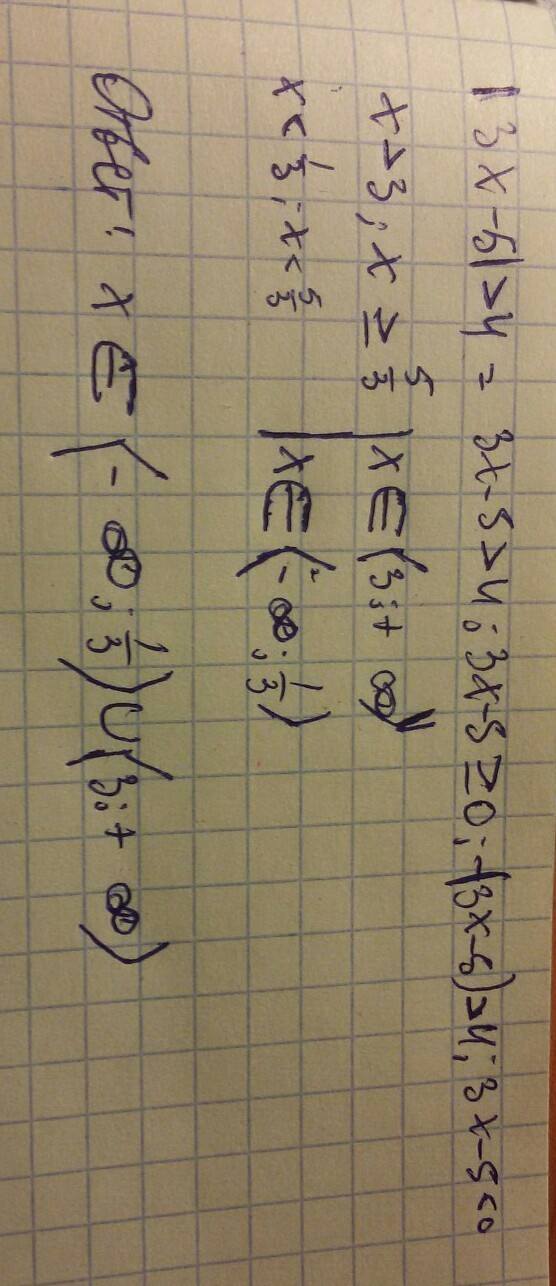 |3x-5|>4 = 3x-5>4; 3x-5≥0; -(3x-5)>4; 3x-5<0
x>3; x ≥ 5/3 | x∈(3;+∞)
x<1/3; x<5/3 | x∈(-∞; 1/3)
Ответ: x ∈ (-∞; 1/3)∪(3;+∞)